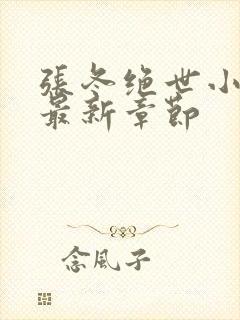 張冬绝世小
最新章節
念風子